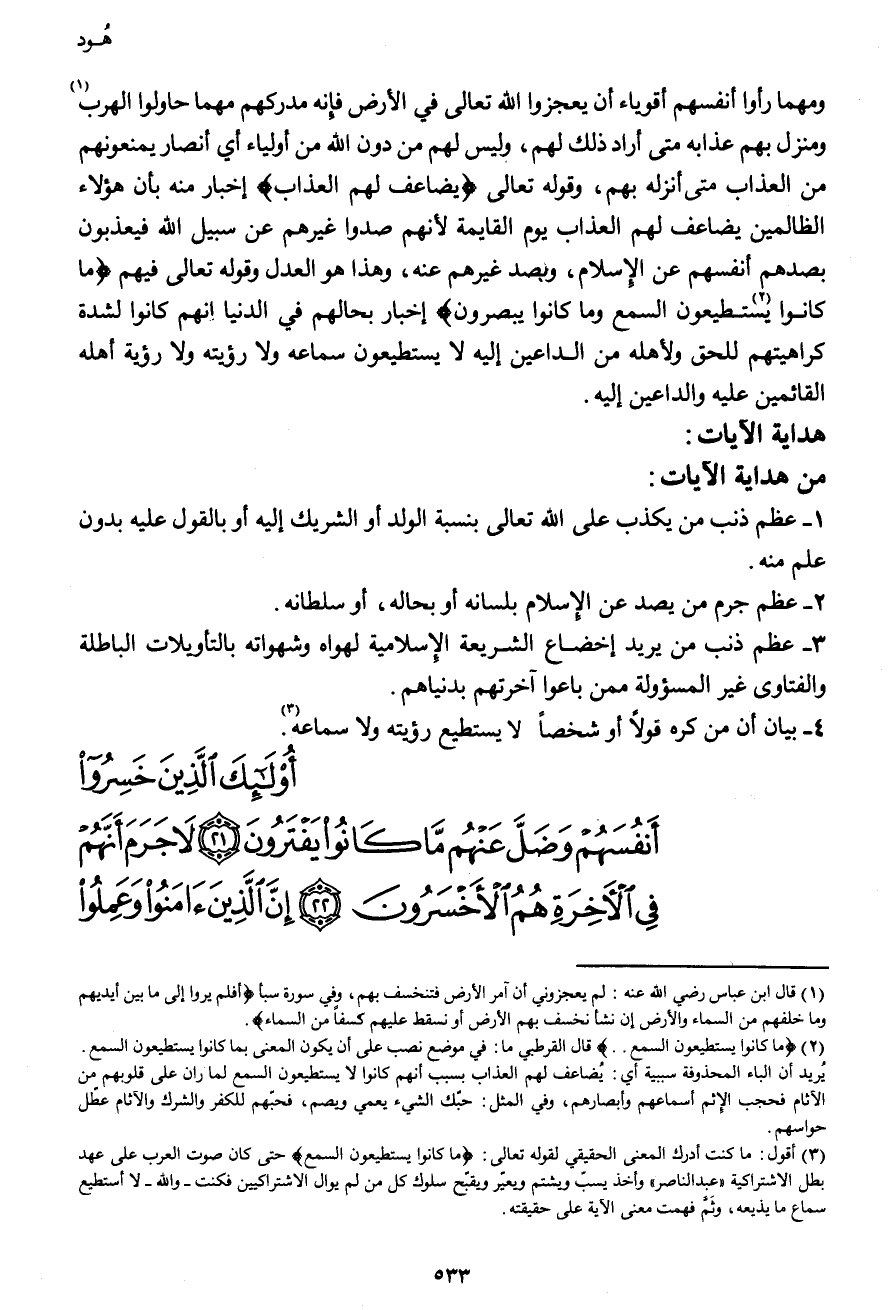 هُـود
ومهما رأوا أنفسهم أقوياء أن يعجزوا الله تعالى في الأرض فإنه مدركهم مهما حاولوا الهرب(١)
ومنزل بهم عذابه متى أراد ذلك لهم، وليس لهم من دون الله من أولياء أي أنصار يمنعونهم
من العذاب متى أنزله بهم، وقوله تعالى ﴿يضاعف لهم العذاب﴾ إخبار منه بأن هؤلاء
الظالمين يضاعف لهم العذاب يوم القايمة لأنهم صدوا غيرهم عن سبيل الله فيعذبون
بصدهم أنفسهم عن الإسلام، وبصد غيرهم عنه، وهذا هو العدل وقوله تعالى فيهم ﴿ما
كانـوا يستـطيعون(٢) السمع وما كانوا يبصرون﴾ إخبار بحالهم في الدنيا إنهم كانوا لشدة
كراهيتهم للحق ولأهله من الـداعين إليه لا يستطيعون سماعه ولا رؤيته ولا رؤية أهله
القائمين عليه والداعين إليه.
هداية الآيات:
من هداية الآيات:
١ـ عظم ذنب من يكذب على الله تعالى بنسبة الولد أو الشريك إليه أو بالقول عليه بدون
علم منه.
٢ـ عظم جرم من يصد عن الإسلام بلسانه أو بحاله، أو سلطانه.
٣ـ عظم ذنب من يريد إخضـاع الشـريعة الإسلامية لهواه وشهواته بالتأويلات الباطلة
والفتاوى غير المسؤولة ممن باعوا آخرتهم بدنياهم.
٤ـ بيان أن من كره قولاً أو شخصاً لا يستطيع رؤيته ولا سماعه(٣).
أُوْلَٰٓئِكَ ٱلَّذِينَ خَسِرُوٓاْ
أَنفُسَهُمْ وَضَلَّ عَنْهُم مَّا كَانُواْ يَفْتَرُونَ ٢١ لَا جَرَمَ أَنَّهُمْ
فِي ٱلْأَخِرَةِ هُمُ ٱلْأَخْسَرُونَ ٢٢ إِنَّ ٱلَّذِينَ ءَامَنُواْ وَعَمِلُواْ
(١) قال ابن عباس رضي الله عنه : لم يعجزوني أن آمر الأرض فتنخسف بهم، وفي سورة سبأ ﴿أفلم يروا إلى ما بين أيديهم
وما خلفهم من السماء والأرض إن نشأ نخسف بهم الأرض أو نسقط عليهم كسفاً من السماء﴾.
(٢) ﴿ما كانوا يستطيعون السمع . .﴾ قال القرطبي ما: في موضع نصب على أن يكون المعنى بما كانوا يستطيعون السمع.
يُريد أن الباء المحذوفة سببية أي: يُضاعف لهم العذاب بسبب أنهم كانوا لا يستطيعون السمع لما ران على قلوبهم من
الآثام فحجب الإثم أسماعهم وأبصارهم، وفي المثل: حبّك الشيء يعمي ويصم، فحبّهم للكفر والشرك والآثام عطّل
حواسهم.
(٣) أقول: ما كنت أدرك المعنى الحقيقي لقوله تعالى: ﴿ما كانوا يستطيعون السمع﴾ حتى كان صوت العرب على عهد
بطل الاشتراكية «عبدالناصر» وأخذ يسبّ ويشتم ويعيّر ويقبّح سلوك كل من لم يوال الاشتراكيين فكنت ـ والله ـ لا أستطيع
سماع ما يذيعه، وثَمَّ فهمت معنى الآية على حقيقته.
٥٣٣